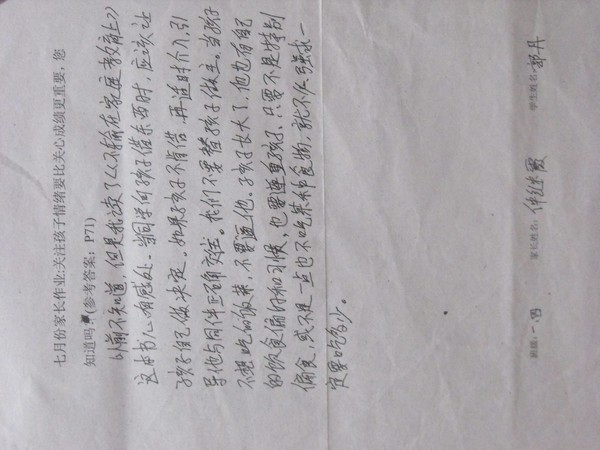 七月份家长作业:关注孩子情绪要比关心成绩更重要，您
知道吗？(参考答案，P71)
以前不知道，但是我读了《不输在家庭教育上》
这本书心有感处。当同学向孩子借东西时，应该让
孩子自己做决定。如果孩子不肯借，再适时介入，引
导他与同伴正确交往。我们不要替孩子做主。当孩子
不想吃的饭菜，不要逼他，孩子长大了，他也有自己
的饮食偏好和习惯，也要尊重孩子，只要不是特别
偏食，或不是一点也不吃某种食物，就不必强求一
定要吃多少。
班级:一.四 家长姓名: 学生姓名:郭丹